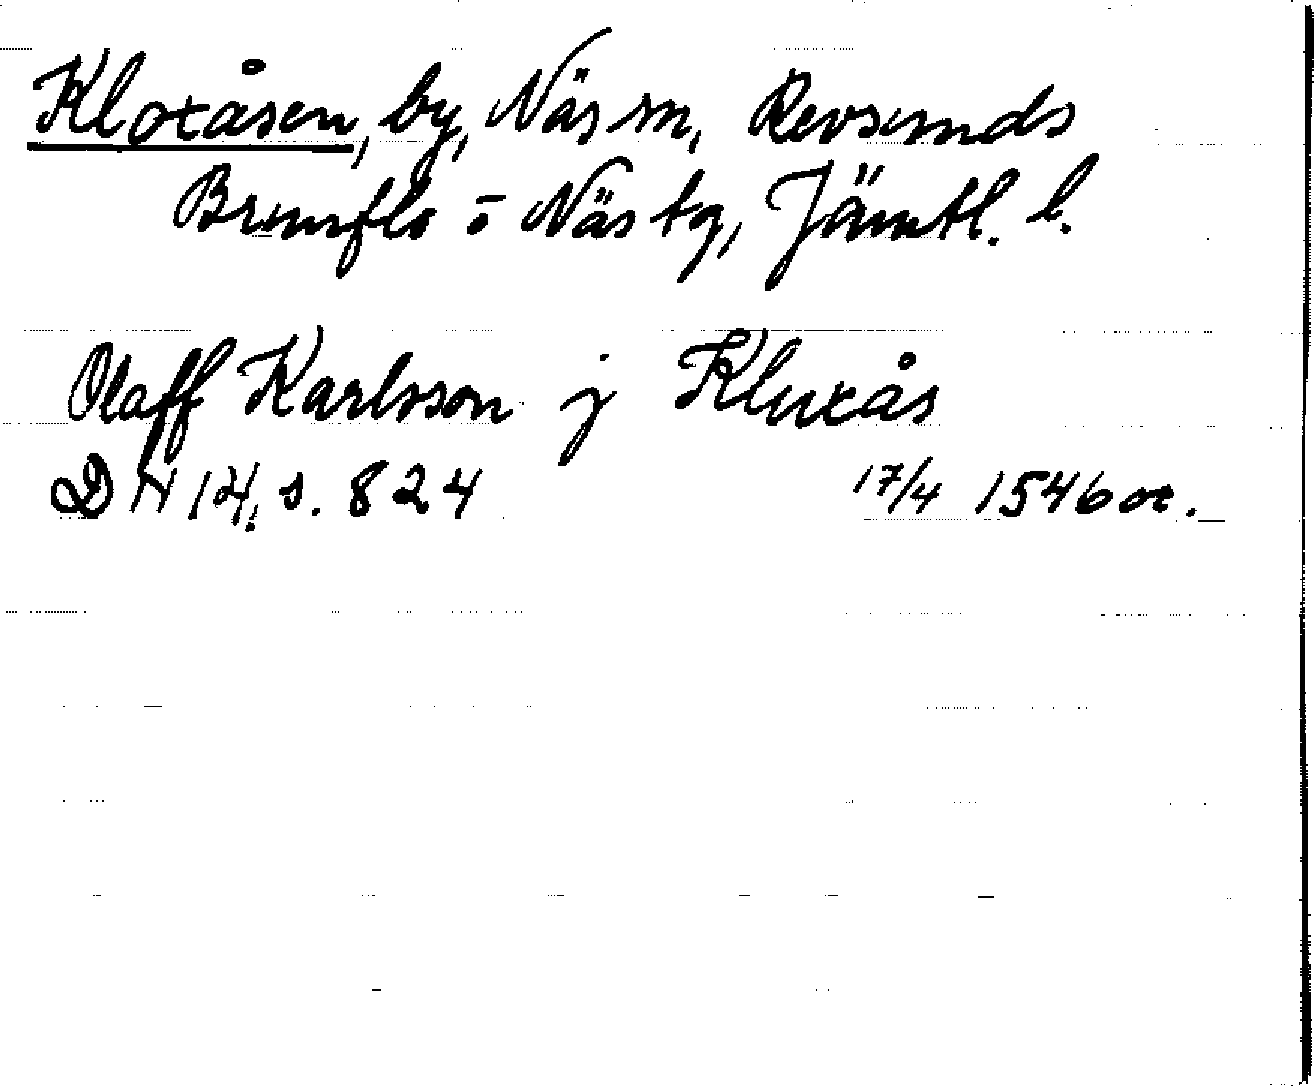 Kloxåsen, by, Näs sn, Revsunds
Brunflo o Näs tg, Jämtl. l.
Olaff Karlsson j Kluxås
DN 14, s. 824 17/4 1546 or.